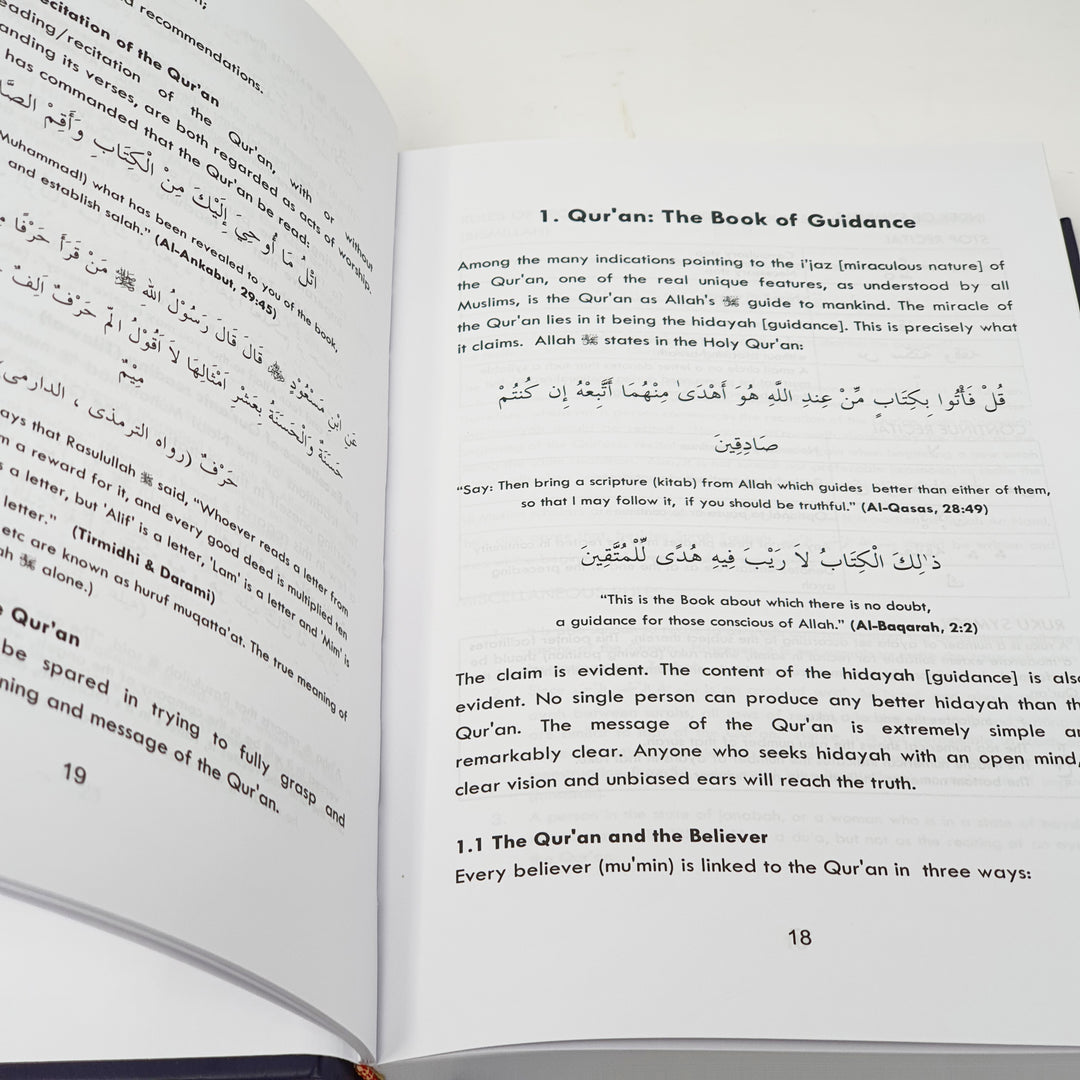 1. Qur'an: The Book of Guidance
Among the many indications pointing to the i'jaz [miraculous nature] of
the Qur'an, one of the real unique features, as understood by all
Muslims, is the Qur'an as Allah's ﷻ guide to mankind. The miracle of
the Qur'an lies in it being the hidayah [guidance]. This is precisely what
it claims. Allah ﷻ states in the Holy Qur'an:
قُلْ فَأْتُوا بِكِتَابٍ مِّنْ عِندِ اللَّهِ هُوَ أَهْدَىٰ مِنْهُمَا أَتَّبِعْهُ إِن كُنتُمْ
صَادِقِينَ
“Say: Then bring a scripture (kitab) from Allah which guides better than either of them,
so that I may follow it, if you should be truthful.” (Al-Qasas, 28:49)
ذٰلِكَ الْكِتَابُ لاَ رَيْبَ فِيهِ هُدًى لِّلْمُتَّقِينَ
“This is the Book about which there is no doubt,
a guidance for those conscious of Allah.” (Al-Baqarah, 2:2)
The claim is evident. The content of the hidayah [guidance] is also
evident. No single person can produce any better hidayah than
Qur'an. The message of the Qur'an is extremely simple
remarkably clear. Anyone who seeks hidayah with an open mind,
clear vision and unbiased ears will reach the truth.
1.1 The Qur'an and the Believer
Every believer (mu'min) is linked to the Qur'an in three ways:
18
recommendations.
of the Qur'an
of the Qur'an, with or without
its verses, are both regarded as acts of worship.
has commanded that the Qur'an be read:
اتْلُ مَا أُوحِيَ إِلَيْكَ مِنَ الْكِتَابِ وَأَقِمْ
Muhammad!) what has been revealed to you of the book,
and establish salah.” (Al-Ankabut, 29:45)
عَنِ ابْنِ مَسْعُوْدٍ قَالَ قَالَ رَسُوْلُ اللهِ ﷺ مَنْ قَرَأَ حَرْفًا
حَسَنَةٌ وَالْحَسَنَةُ بِعَشْرِ اَمْثَالِهَا لاَ اَقُوْلُ الٓمّ حَرْفٌ اَلِفٌ
مِيْمٌ
حَرْفٌ (رواه الترمذى ، الدارمى
that Rasulullah ﷺ said, “Whoever reads a letter from
a reward for it, and every good deed is multiplied ten
a letter, but 'Alif' is a letter, 'Lam' is a letter and 'Mim' is
letter.” (Tirmidhi & Darami)
etc are known as huruf muqatta'at. The true meaning of
ﷻ alone.)
Qur'an
be spared in trying to fully grasp and
and message of the Qur'an.
19